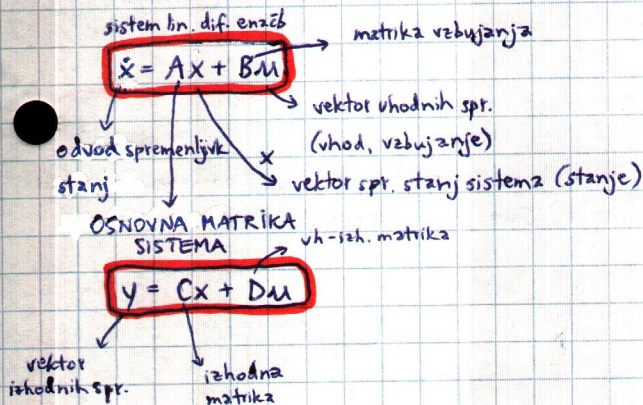 sistem lin. dif. enačb
matrika vzbujanja
ẋ = Ax + Bu
vektor vhodnih spr.
(vhod, vzbujanje)
odvod spremenljivk
stanj
x
vektor spr. stanj sistema (stanje)
OSNOVNA MATRIKA
SISTEMA
vh-izh. matrika
y = Cx + Du
vektor
izhodnih spr.
izhodna
matrika